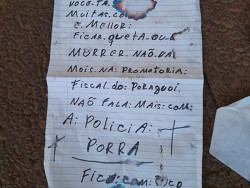 VOCE.TA.
MUITAS.CO
E.MELHOR:
FICAR.QUETA.OUB
MORRER.NÃO.VA
MAIS.NA:PROMOTORIA:
FISCAL.DO:PARAGUAI.
NÃO FALA:MAIS:COM:
A:POLICIA:
PORRA
FICO:COM: